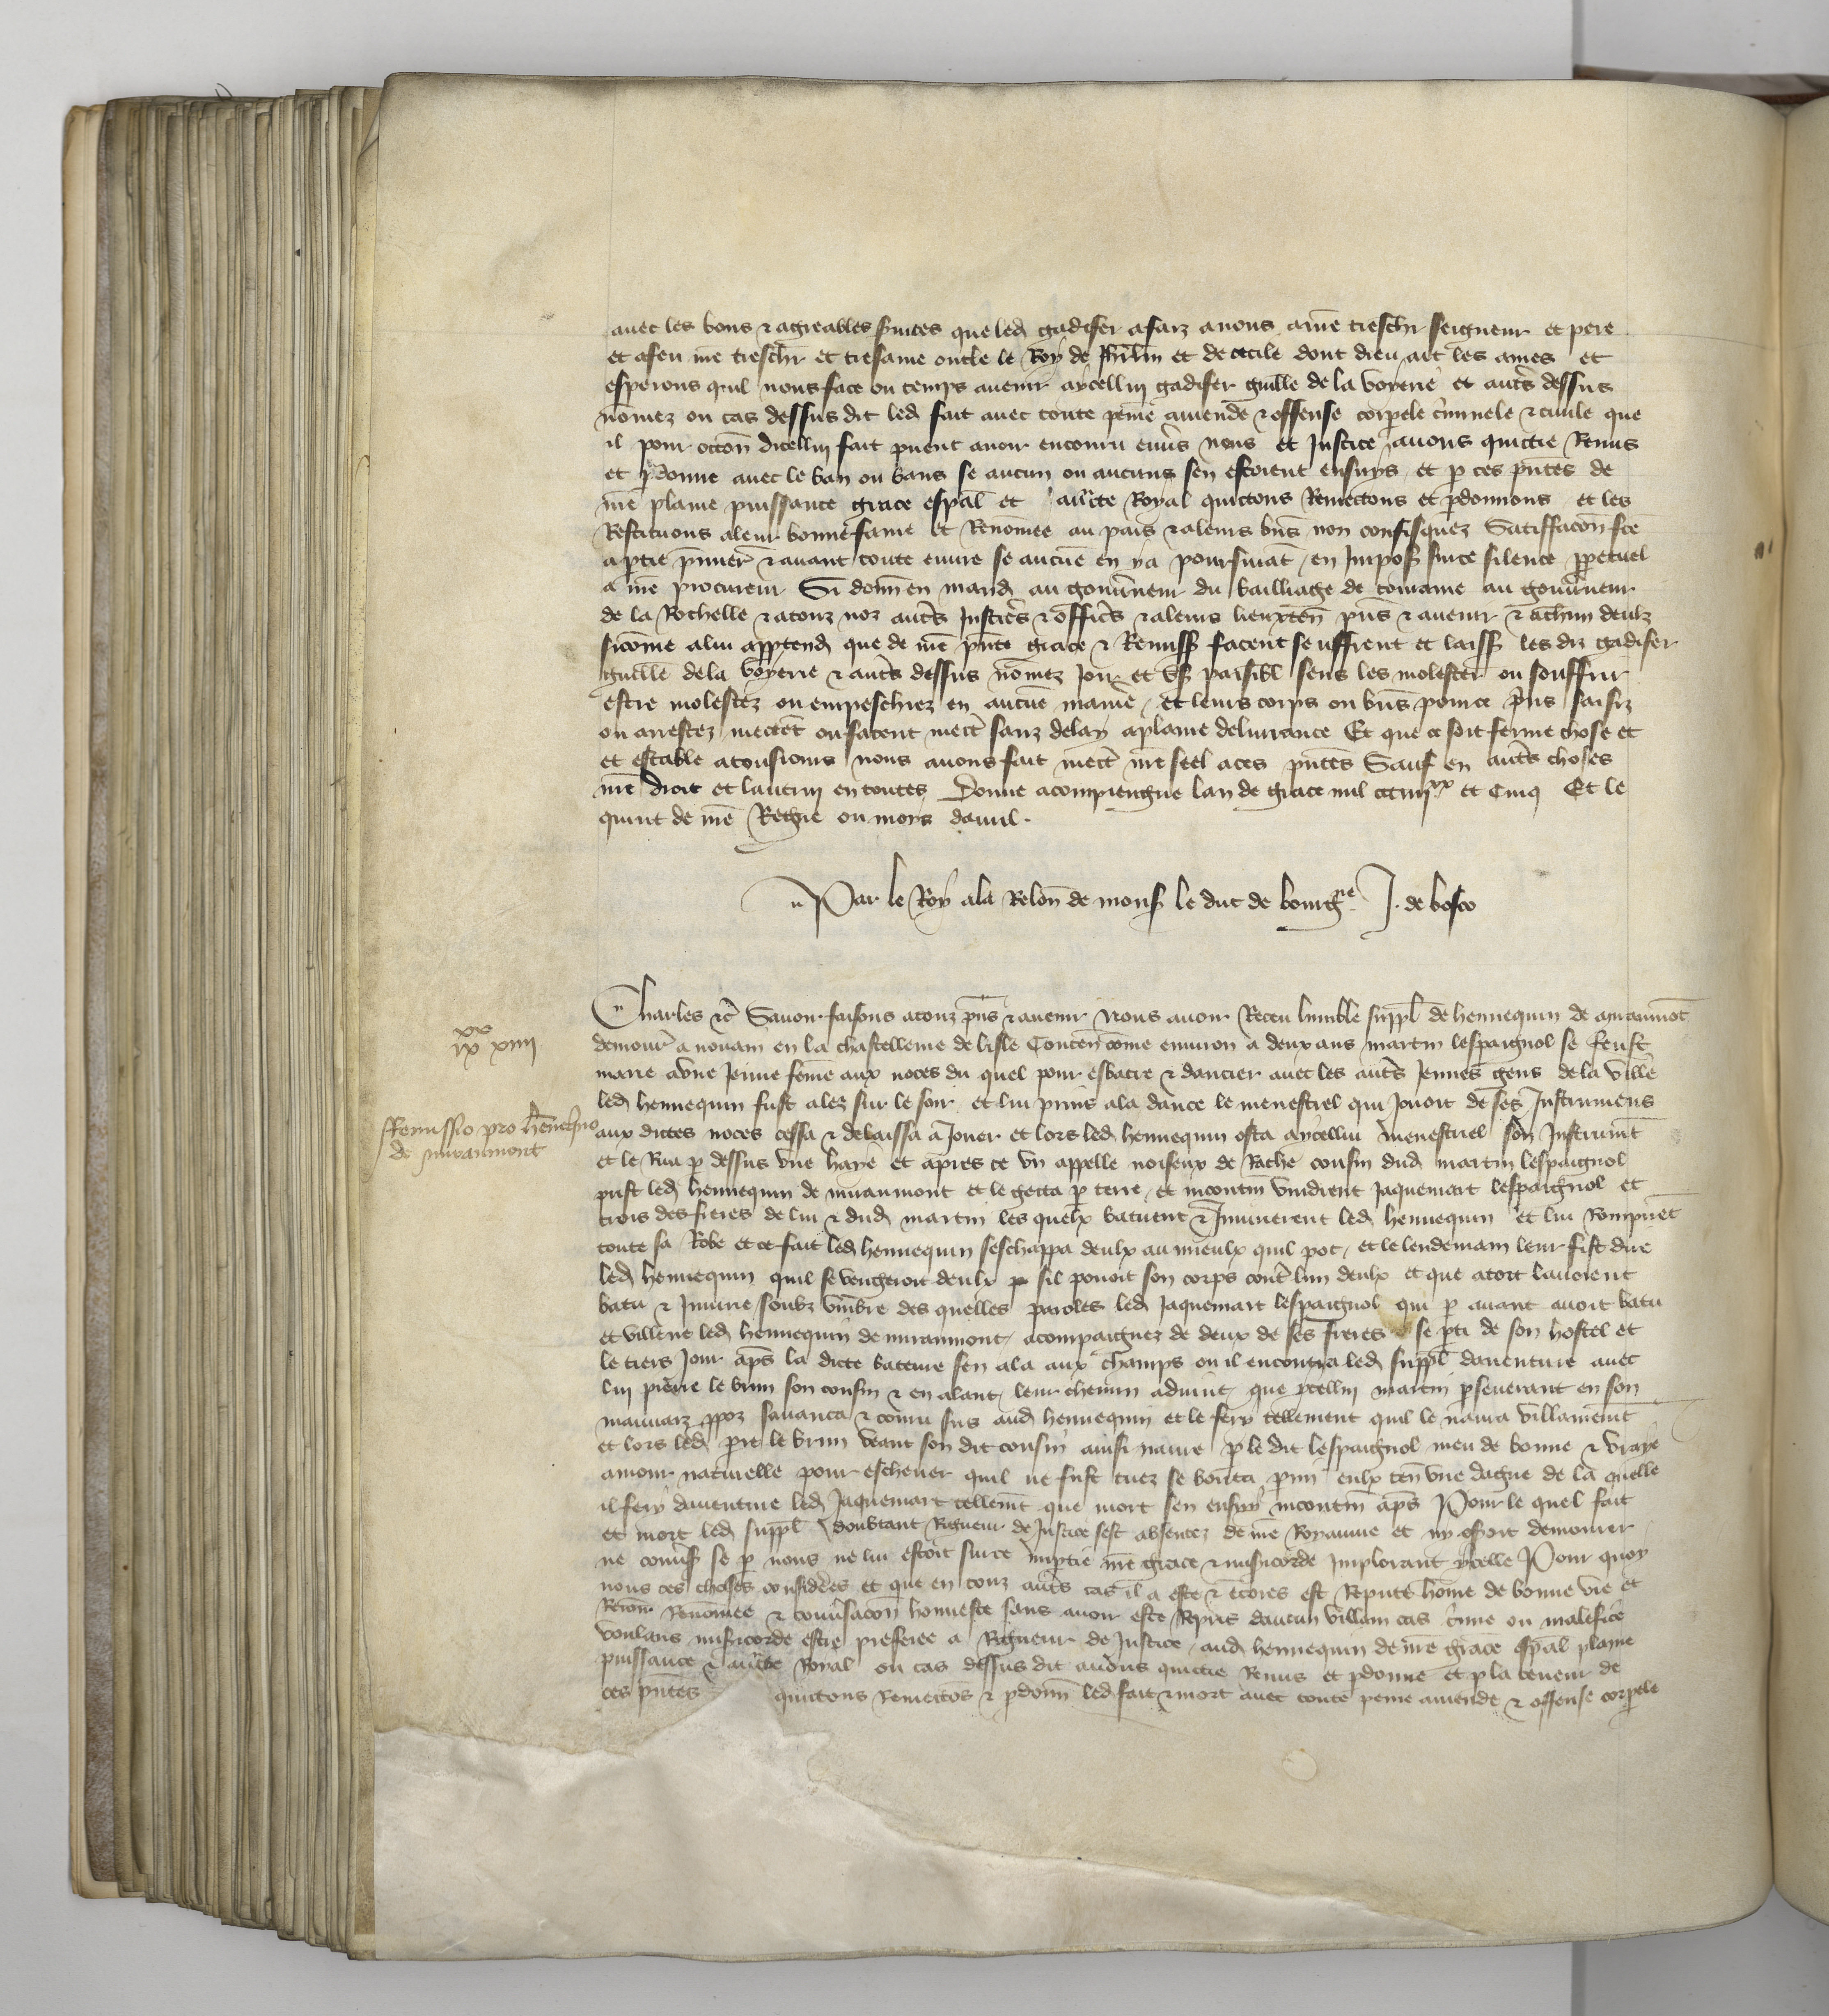 auec les bons & agreables seruices que led gadifer a faiz a nous a nre treschr seigneur et pere
et a feu nre treschr et tresame oncle le Roy de Jhrlm et de cecile dont dieu ait les ames et
esperons quil nous face ou temps auenir aycellui gadifer guille de la voyerie et autrs dessus
nomez ou cas dessus dit led fait auec toute peine amende & offense corpele criminele & ciuile que
il pour occon dicellui fait peuent auoir encouru enuers nous et Justice auons quictie Remis
et pdonne auec le ban ou bans se aucun ou aucuns sen estoient ensuys et p ces pntes de
nre plaine puissance grace espal et aucte Royal quictons Remectons et pdonnons et les
Restituons a leur bonne fame et Renomee au pais & a leurs biens non confisquez Satiffacon fcte
a ptie pmier & auant toute euure se aucune en y a poursuiat en Impos surce silence ppetuel
a nre procureur Si donn en mand au gouuneur du bailliage de touraine au gouuneur
de la Rochelle & a touz noz autrs Justicrs & officrs & a leurs lieuxten pns & auenir & achun deulx
sicome a lui apptend que de nre pnte grace & Remiss facent seuffrent et laiss les diz gadifer
guille de la voyerie & autrs dessus nomez Joir et vs paisibl sens les molester ou souffrir
estre molestez ou empeschiez en aucune maniere et leurs corps ou biens pource prins saisiz
ou arrestez mectet ou facent mectr sanz delay a plaine deliurance Et que ce soit ferme chose et
et estable atousiours nous auons fait mectr nre seel a ces pntes Sauf en autrs choses
nre droit et lautruy en toutes Donne a compiengne lan de grace mil ccc iiijxx et Cinq Et le
quint de nre Regne ou mois dauril.
Par le Roy a la Relon de mons le duc de bourgne J. de bosco
Charles &c Sauoir faisons a touz pns & auenir Nous auoir Receu lumble suppl de hennequin de miraumot
demour a nouain en la chastellenie de lisle Conten come enuiron a deux ans martin lespaignol se feust
marie a vne Jeune feme aux noces du quel pour esbatre & dancier auec les autrs Jeunes gens de la ville
led hennequin fust alez sur le soir et lui prins a la dance le menestrel qui Jouoit de ses Instrumens
aux dictes noces cessa & delaissa a Jouer et lors led hennequin osta aycellui menestrel son Instrumt
et le Rua p dessus vne haye et apres ce vn appelle noiseux de Rache cousin dud martin lespaignol
prist led hennequin de miraumont et le gecta p terre et incontin vindrent Jaquemart lespaignol et
trois des freres de lui & dud martin les quelx batirent & Iniurierent led hennequin et lui Rompiret
toute sa Robe et ce fait led hennequin seschappa deulx au mieulx quil pot et le lendemain leur fist dire
led hennequin quil se vengeroit deulx sil pouoit son corps contr lun deulx et que a tort lauoient
batu & Iniurie soubz vmbre des quelles paroles led Jaquemart lespaignol qui p auant auoit batu
et villene led hennequin de miraumont acompaignez de deux de ses freres se pti de son hostel et
le tiers Jour aps la dicte bateure sen ala aux champs ou il encontra led suppl dauenture auec
lui pierre le brun son cousin & en alant leur chemin aduint que ycellui martin pseuerant en son
mauuaiz ppoz sauanca & couru sus aud hennequin et le fery tellement quil le naura villainemt
et lors led pre le brun veant son dit cousin ainsi naure p le dit lespaignol meu de bonne & vraye
amour naturelle pour escheuer quil ne fust tuez se bouta pmi eulx ten vne dague de la quelle
il fery dauenture led Jaquemart tellemt que mort sen ensuy incontin aps Pour le quel fait
et mort led suppl doubtant Rigueur de Justice sest absentez de nre Royaume et ny oseroit demourer
ne conuers se p nous ne lui estoit surce imptie nre grace & misicorde Implorant ycelle Pour quoy
nous ces choses considerees et que en touz autrs cas il a este & encores est Repute home de bonne vie et
Renomee & conuersacon honneste sans auoir este Repris daucun villain cas crime ou malefice
voulans misicorde estre preferee a Rigueur de Justice aud hennequin de nre grace espal plaine
puissance & aucte Royal ou cas dessus dit auons quictie Remis et pdonne et p la teneur de
ces pntes quictons Remectos & pdonn led fait & mort auec toute peine amende & offense corpele
ixxx xiiii
Remissio pro hennequino
de miraumont